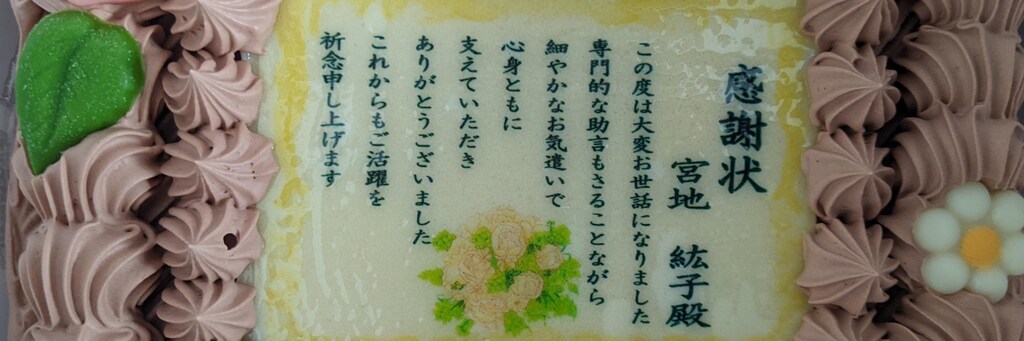 感謝状
宮地 紘子殿
この度は大変お世話になりました
専門的な助言もさることながら
細やかなお気遣いで
心身ともに
支えていただき
ありがとうございました
これからもご活躍を
祈念申し上げます